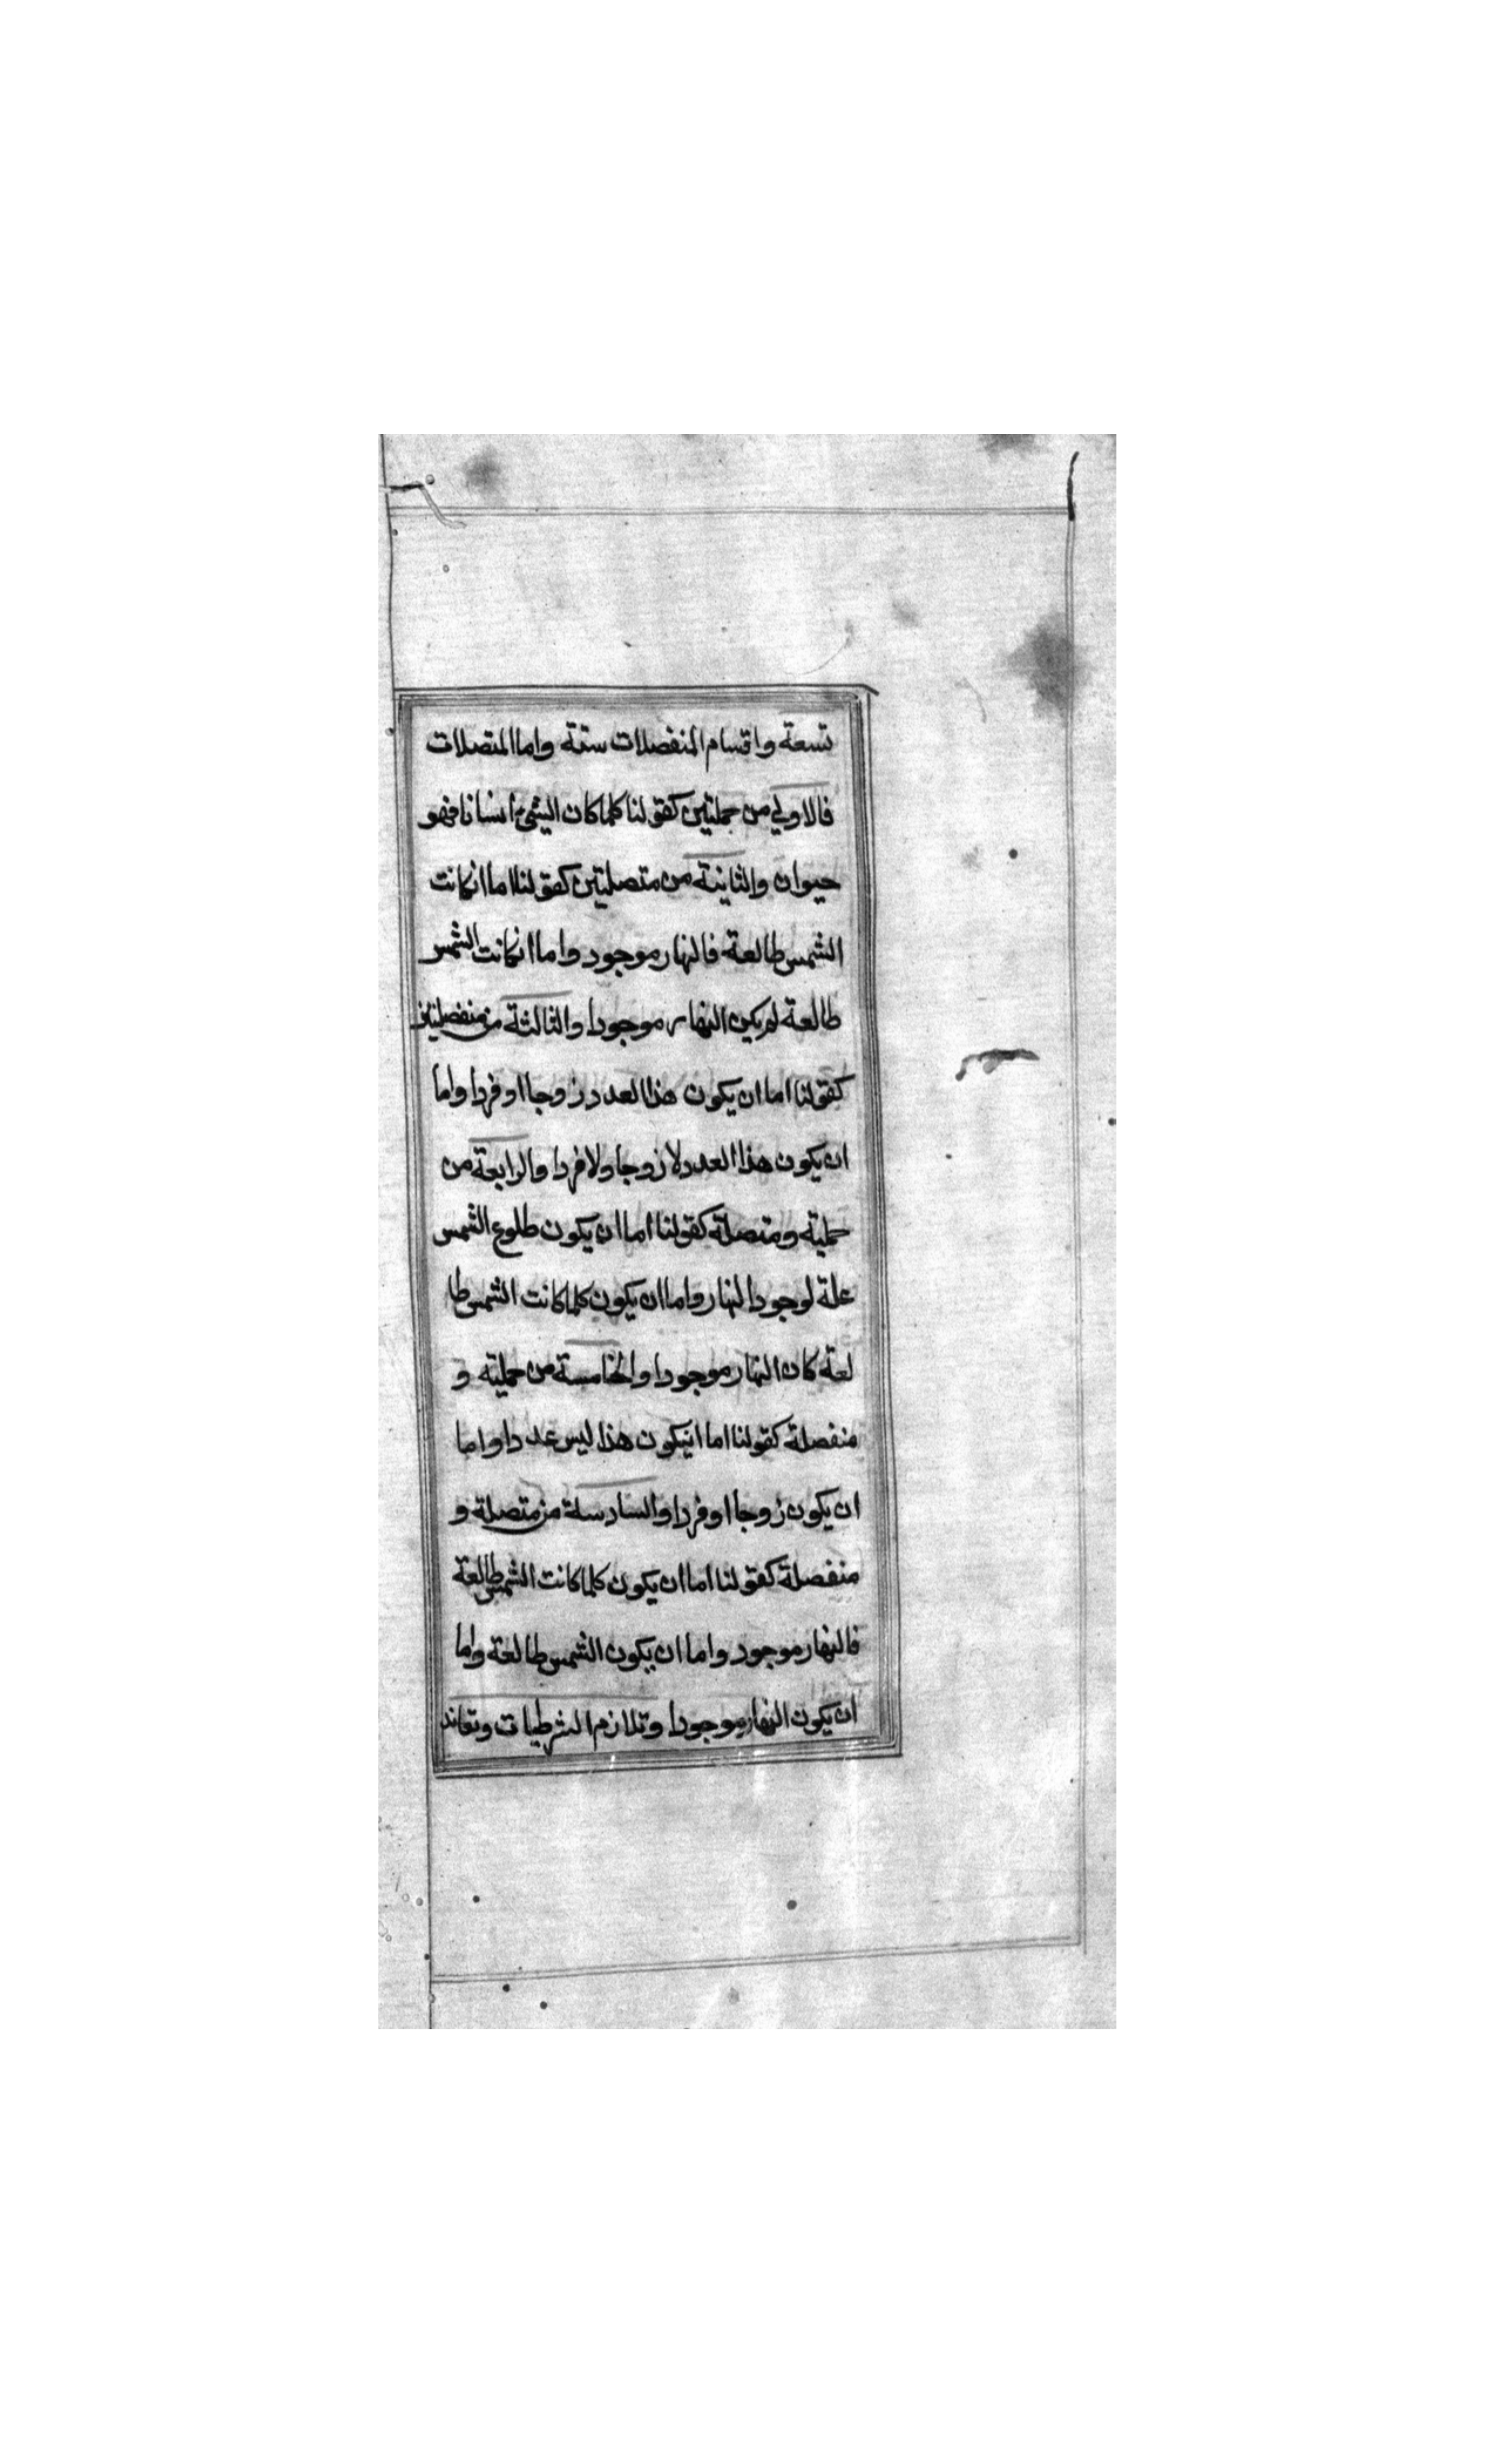 تسعة واقسام المنفصلات ستة واما المتصلات
فالاولي من حمليتين كقولنا كلما كان الشيء انسانا فهو
حيوان والثانية من متصليتين كقولنا اما انكانت
الشمس طالعة فالنهار موجود واما انكانت الشمس
طالعة لم يكن النهار موجودا والثالثة من منفصليتين
كقولنا اما ان يكون هذا العدد زوجا او فردا واما
ان يكون هذا العدد لا زوجا ولا فردا والرابعة من
حملية ومتصلة كقولنا اما ان يكون طلوع الشمس
علة لوجود النهار واما ان يكون كلما كانت الشمس طا
لعة كان النهار موجودا والخامسة من حملية و
منفصلة كقولنا اما انيكون هذا ليس عددا واما
ان يكون زوجا او فردا والسادسة من متصلة و
منفصلة كقولنا اما ان يكون كلما كانت الشمس طالعة
فالنهار موجود واما ان يكون الشمس طالعة واما
ان يكون النهار موجودا وتلازم الشرطيات وتعاند